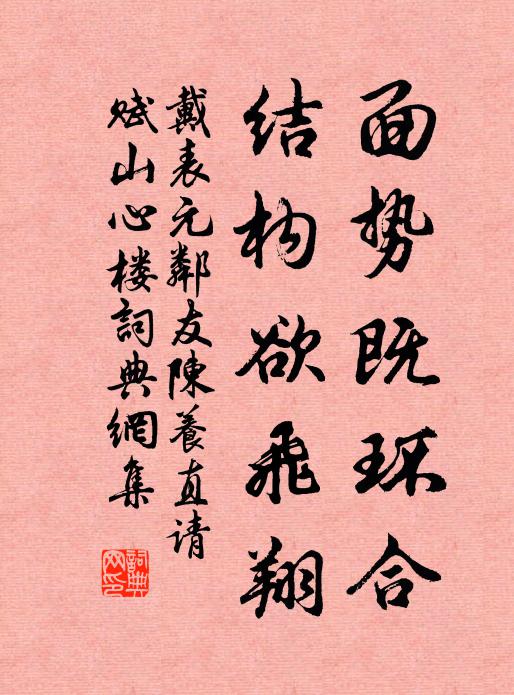 面势既环合
结构欲飞翔
戴表元鄰友陳養直请
赋山心楼詞典網集
詞典網印